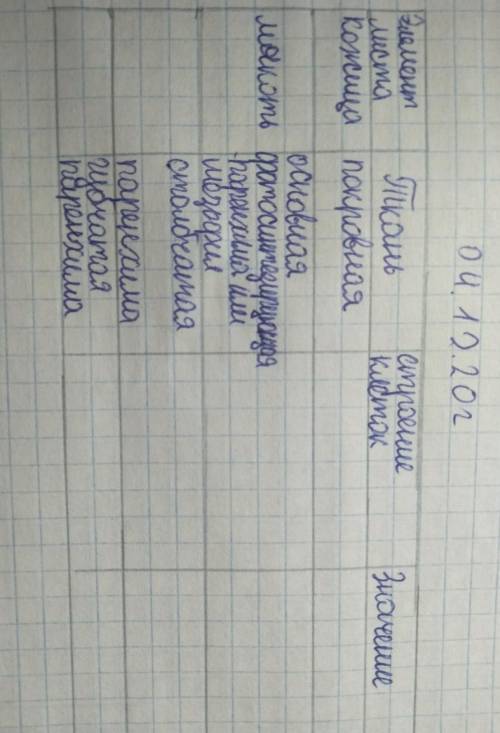 04.12.20г
Элемент листа
Ткань
строение клеток
Значение
кожица
покровная
мякоть
основная
фотосинтезирующая
паренхима или
мезофилл
столбчатая
паренхима
губчатая
паренхима